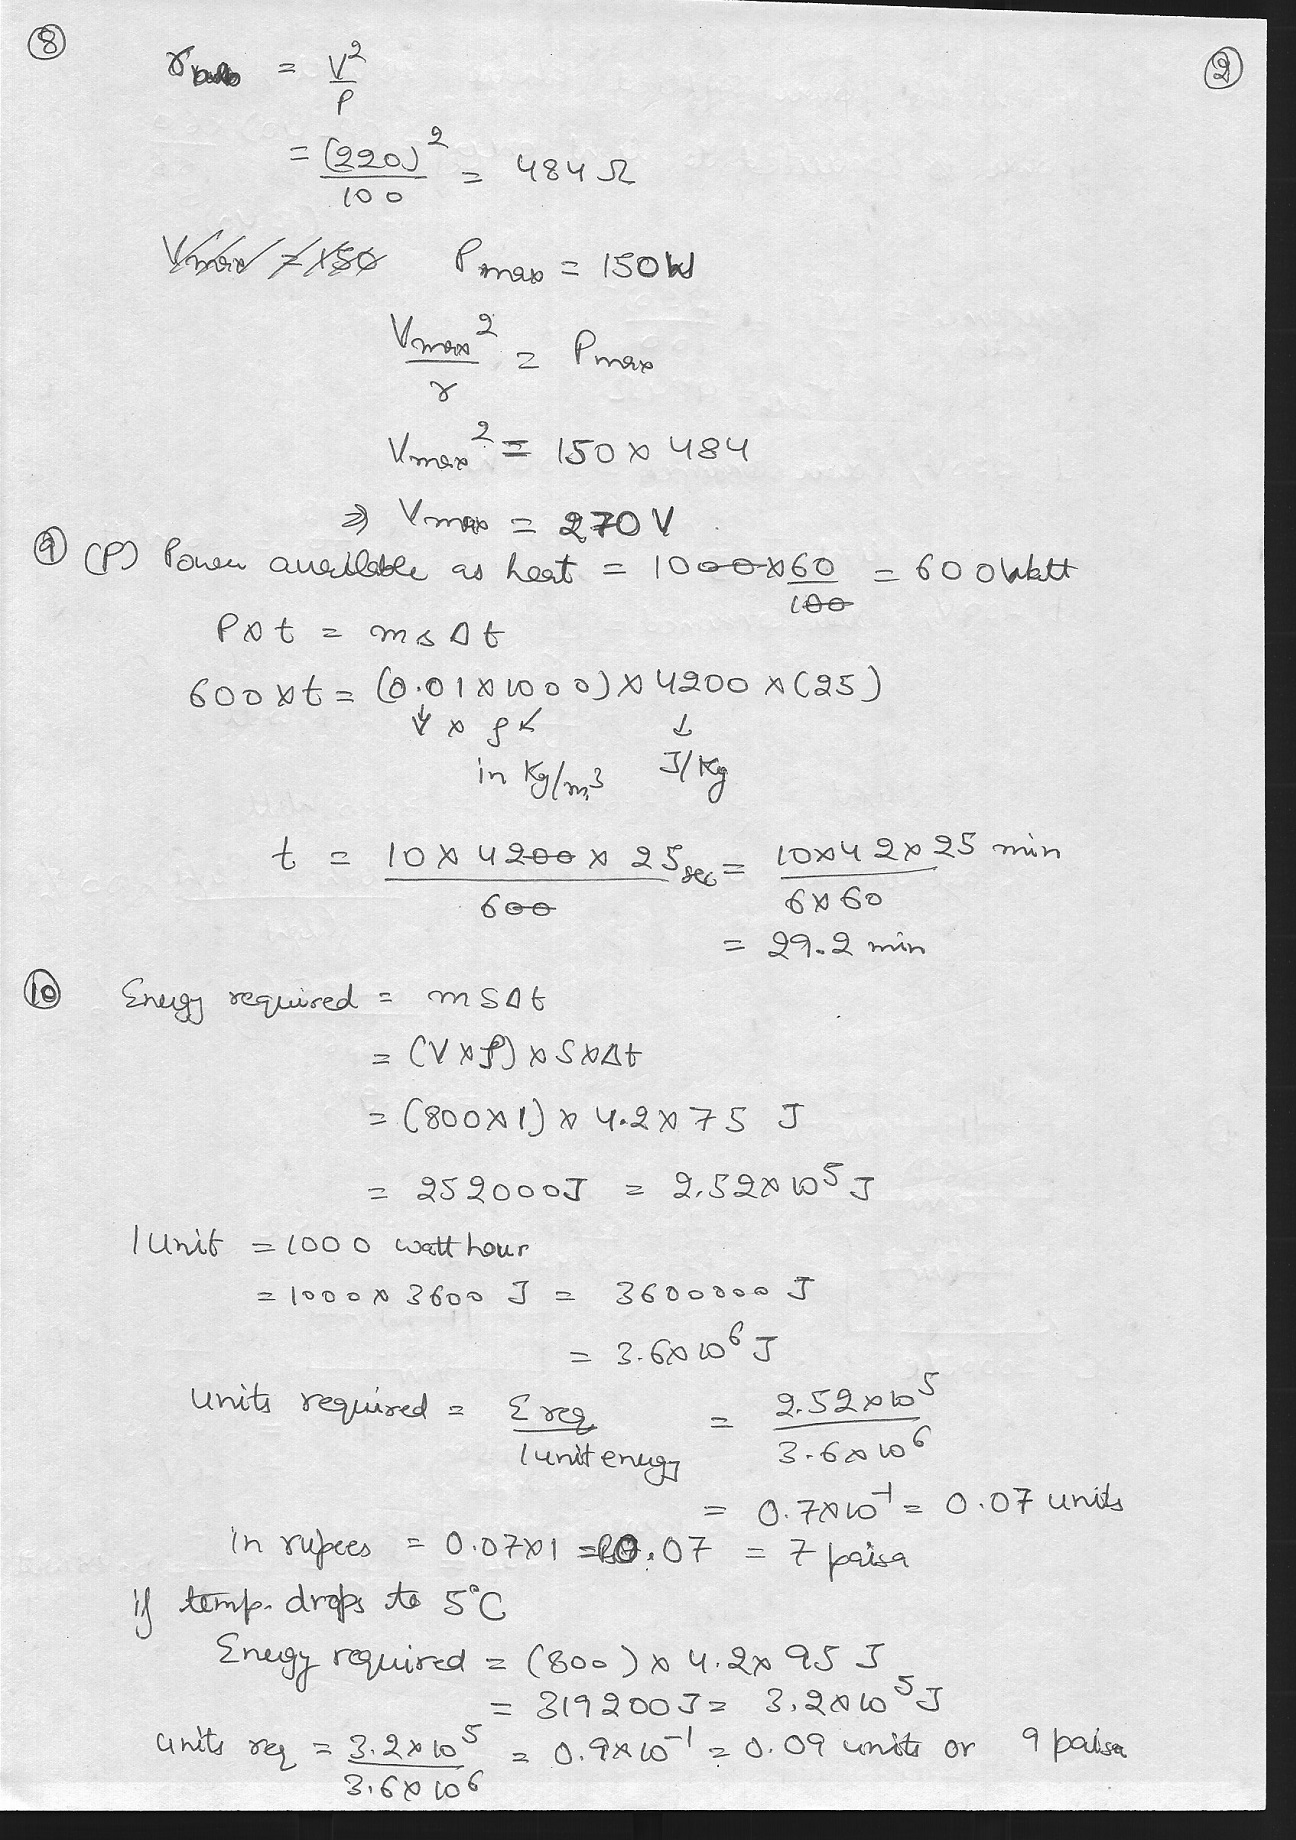 8
2
r bulb = V²/P
= (220)²/100 = 484 Ω
Vmax = 150 Pmax = 150W
Vmax²/r = Pmax
Vmax² = 150 × 484
⇒ Vmax = 270 V
9 (P) Power available as heat = 1000×60/100 = 600 Watt
P×t = msΔt
600×t = (0.01×1000)×4200×(25)
↓ × ρ ↙ ↓
in Kg/m³ J/Kg
t = 10×4200×25/600 sec = 10×42×25/6×60 min
= 29.2 min
10 Energy required = mSΔt
= (V×ρ)×S×Δt
= (800×1)×4.2×75 J
= 252000J = 2.52×10⁵ J
1 Unit = 1000 watt hour
= 1000×3600 J = 3600000 J
= 3.6×10⁶ J
units required = E req/1 unit energy = 2.52×10⁵/3.6×10⁶
= 0.7×10⁻¹ = 0.07 units
in rupees = 0.07×1 = 0.07 = 7 paisa
if temp. drops to 5°C
Energy required = (800)×4.2×95 J
= 319200J = 3.2×10⁵ J
units req = 3.2×10⁵/3.6×10⁶ = 0.9×10⁻¹ = 0.09 units or 9 paisa